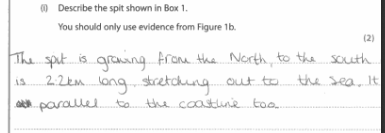 (i) Describe the spit shown in Box 1.
You should only use evidence from Figure 1b.
(2)
The spit is growing from the North, to the south
is 2.2km long, stretching out to the sea. It
parallel to the coastline too.